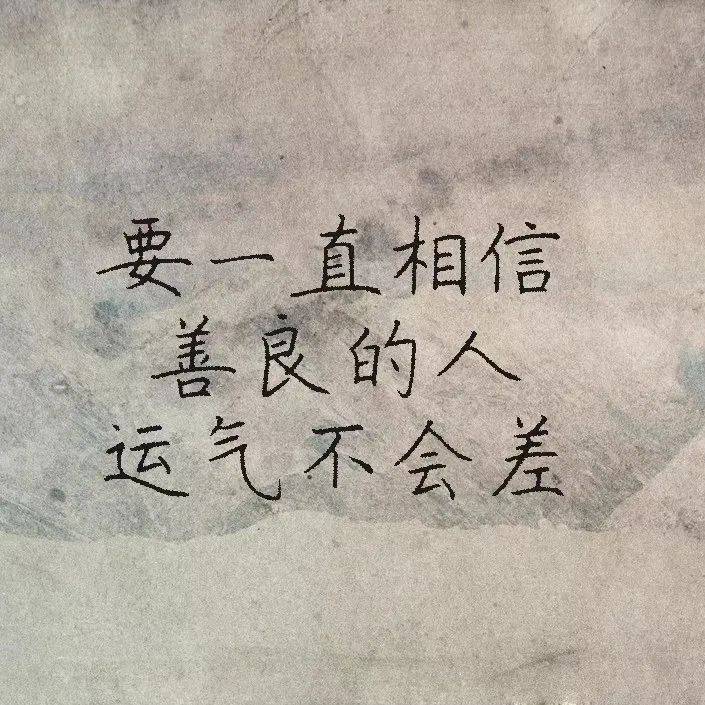 要一直相信
善良的人
运气不会差